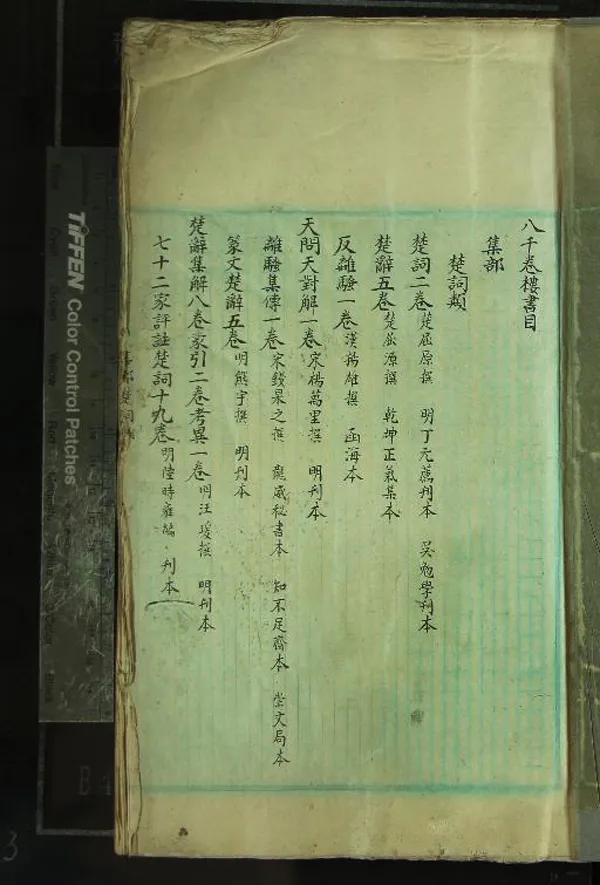 八千卷樓書目
集部
楚詞類
楚詞二卷 楚屈原撰 明丁元薦刊本 吳勉學刊本
楚辭五卷 楚屈源撰 乾坤正氣集本
反離騷一卷 漢揚雄撰 函海本
天問天對解一卷 宋楊萬里撰 明刊本
離騷集傳一卷 宋錢杲之撰 龍威秘書本 知不足齋本 崇文局本
篆文楚辭五卷 明熊宇撰 明刊本
楚辭集解八卷蒙引二卷考異一卷 明汪瑗撰 明刊本
七十二家評註楚詞十九卷 明陸時雍編 刊本
TIFFEN Color Control Patches